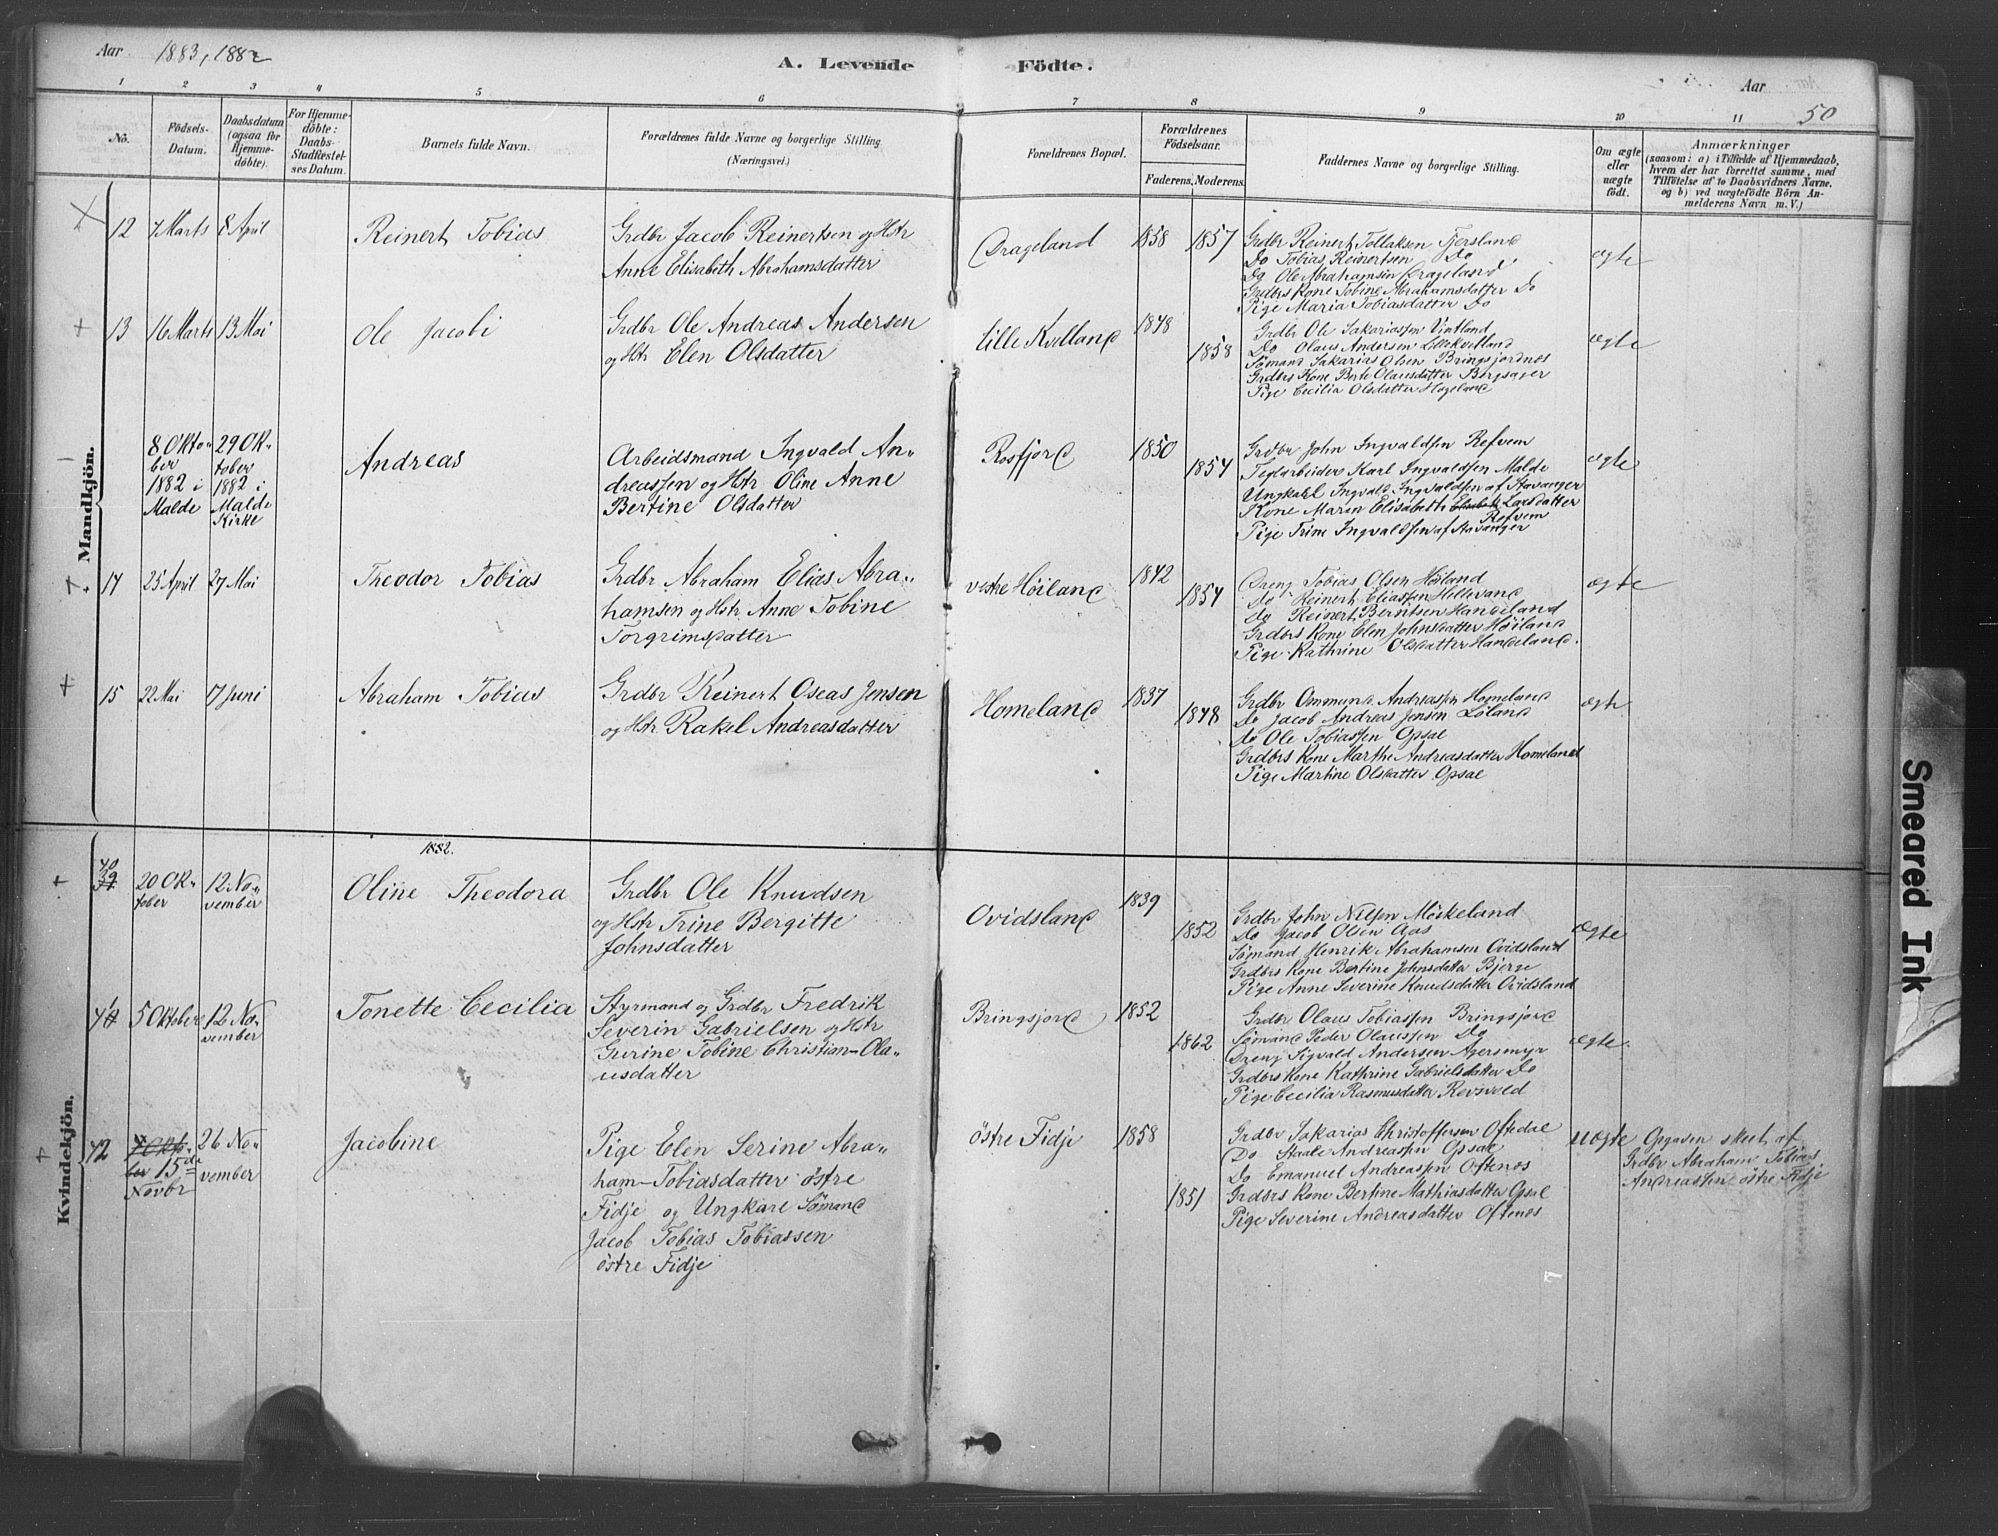 Aar 1883, 1882
A. Levende Födte.
Aar
50
1 2 3 4 5 6 7 8 9 10 11
No.
Födsels-Datum.
Daabsdatum (ogsaa for Hjemmedöbte).
For Hjemmedöbte: Daabs-Stadfæstelses Datum.
Barnets fulde Navn.
Forældrenes fulde Navne og borgerlige Stilling (Næringsvei.)
Forældrenes Bopæl.
Forældrenes Födselsaar.
Faderens. Moderens.
Faddernes Navne og borgerlige Stilling.
Om ægte eller uægte födt.
Anmærkninger
(saasom: a) i Tilfælde af Hjemmedaab, hvem der har forrettet samme, med Tilföielse af to Daabsvidners Navne, og b) ved uægtefödte Börn Anmelderens Navn m. V.)
Mandkjön.
12 7 Marts 8 April
Reinert Tobias
Grdbr Jacob Reinertsen og Hstr
Anne Elisabeth Abrahamsdatter
Drageland
1858 1857
Grdbr Reinert Tollaksen Fjersland
Do Tobias Reinertsen Do
Do Ole Abrahamsen Drageland
Grdbrs Kone Tobine Abrahamsdatter Do
Pige Maria Tobiasdatter Do
ægte
13 16 Marts 13 Mai
Ole Jacobi
Grdbr Ole Andreas Andersen
og Hstr Elen Olsdatter
Lille Kvelland
1848 1858
Grdbr Ole Sakariassen Vintland
Do Olaus Andersen Lillekvelland
Sømand Sakarias Olsen Bringsjordnes
Grdbrs Kone Berte Olausdatter Bergsager
Pige Cecilia Olsdatter Hageland
ægte
8 Oktober 1882 i Malde
29 Oktober 1882 i Malde Kirke
Andreas
Arbeidsmand Ingvald An-
dreassen og Hstr Oline Anne
Bertine Olsdatter
Rosfjord
1850 1854
Grdbr John Ingvaldsen Refvem
Teglarbeider Karl Ingvaldsen Malde
Ungkarl Ingvald Ingvaldsen af Stavanger
Kone Maren Elisabeth Larsdatter
Refvem
Pige Trine Ingvaldsen af Stavanger
ægte
14 25 April 27 Mai
Theodor Tobias
Grdbr Abraham Elias Abra-
hamsen og Hstr Anne Tobine
Torgrimsdatter
vestre Høiland
1842 1854
Dreng Tobias Olsen Høiland
Do Reinert Eliassen Helliland
Do Reinert Berntsen Handeland
Grdbrs Kone Elen Johnsdatter Høiland
Pige Kathrine Olsdatter Handeland.
ægte
15 22 Mai 17 Juni
Abraham Tobias
Grdbr Reinert Oseas Jensen
og Hstr Rakel Andreasdatter
Homeland
1837 1848
Grdbr Ommund Andreassen Homeland
Do Jacob Andreas Jensen Løland
Do Ole Tobiassen Opsal
Grdbrs Kone Marthe Andreasdatter Homeland
Pige Martine Olsdatter Opsal
ægte
Kvindekjön.
1882.
40 39
20 Oktober 12 November
Oline Theodora
Grdbr Ole Knudsen
og Hstr Trine Bergitte
Johnsdatter
Ovidsland
1839 1852
Grdbr John Nilsen Møskeland
Do Jacob Olsen Aas
Sømand Henrik Abrahamsen Ovidsland
Grdbrs Kone Bertine Johnsdatter Bjerge
Pige Anne Severine Knudsdatter Ovidsland
ægte
41 5 Oktober 12 November
Tonette Cecilia
Styrmand og Grdbr Fredrik
Severin Gabrielsen og Hstr
Gurine Tobine Christian-Ola-
usdatter
Bringsjord
1852 1862
Grdbr Olaus Tobiassen Bringsjord
Sømand Peder Olaussen Do
Dreng Sigvald Andersen Agersmyr
Grdbrs Kone Kathrine Gabrielsdatter Do
Pige Cecilia Rasmusdatter Revsvold
ægte
42 15de Novbr 26 November
Jacobine
Pige Elen Serine Abra-
ham-Tobiasdatter östre
Fidje og Ungkarl Sömand
Jacob Tobias Tobiassen
östre Fidje
östre Fidje
1858 1851
Grdbr Sakarias Christoffersen Oftedal
Do Staale Andreassen Opsal
Do Emanuel Andreassen Oftenes
Grdbrs Kone Bertine Mathiasdatter Opsal
Pige Severine Andreasdatter Oftenes
uægte
Opgaven skeet af
Grdbr Abraham Tobias
Andreassen östre Fidje
Smeared Ink